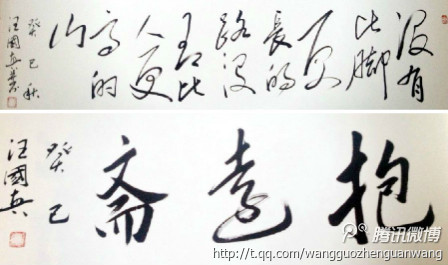 没有
比脚
更
长的
路没
有比
人更
高的
山
癸巳秋
汪國真書
抱斋
癸巳
汪國真
腾讯微博
http://t.qq.com/wangguozhenguanwang